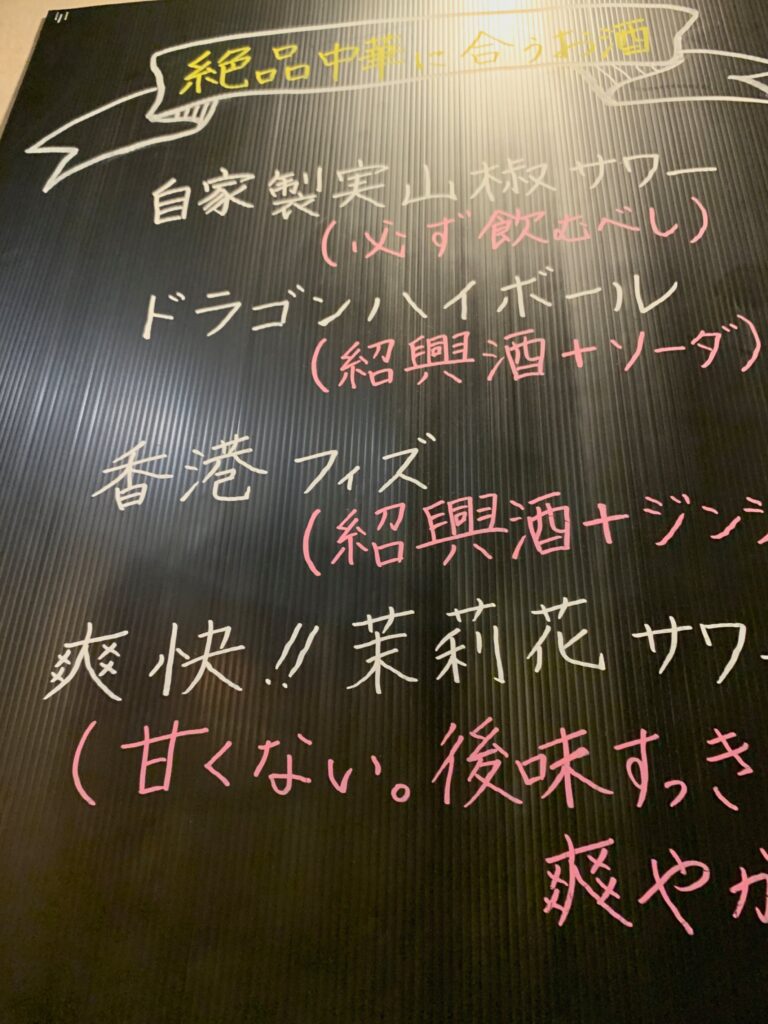 絶品中華に合うお酒
自家製実山椒サワー
(必ず飲むべし)
ドラゴンハイボール
(紹興酒+ソーダ)
香港フィズ
(紹興酒+ジンジ
爽快!!茉莉花サワー
(甘くない。後味すっき
爽やか